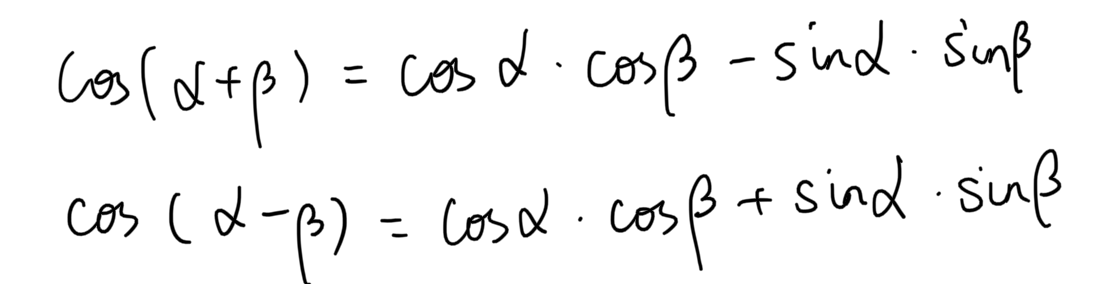 cos(α+β) = cos α · cosβ − sinα · sinβ
cos (α−β) = cosα · cosβ + sinα · sinβ